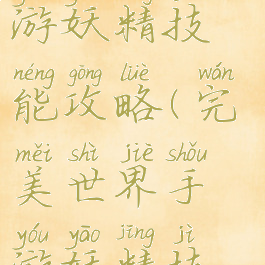 游妖精技
néng gōng lüè wán
能攻略(完
měi shì jiè shǒu
美世界手
yóu yāo jīng jì
游妖精技